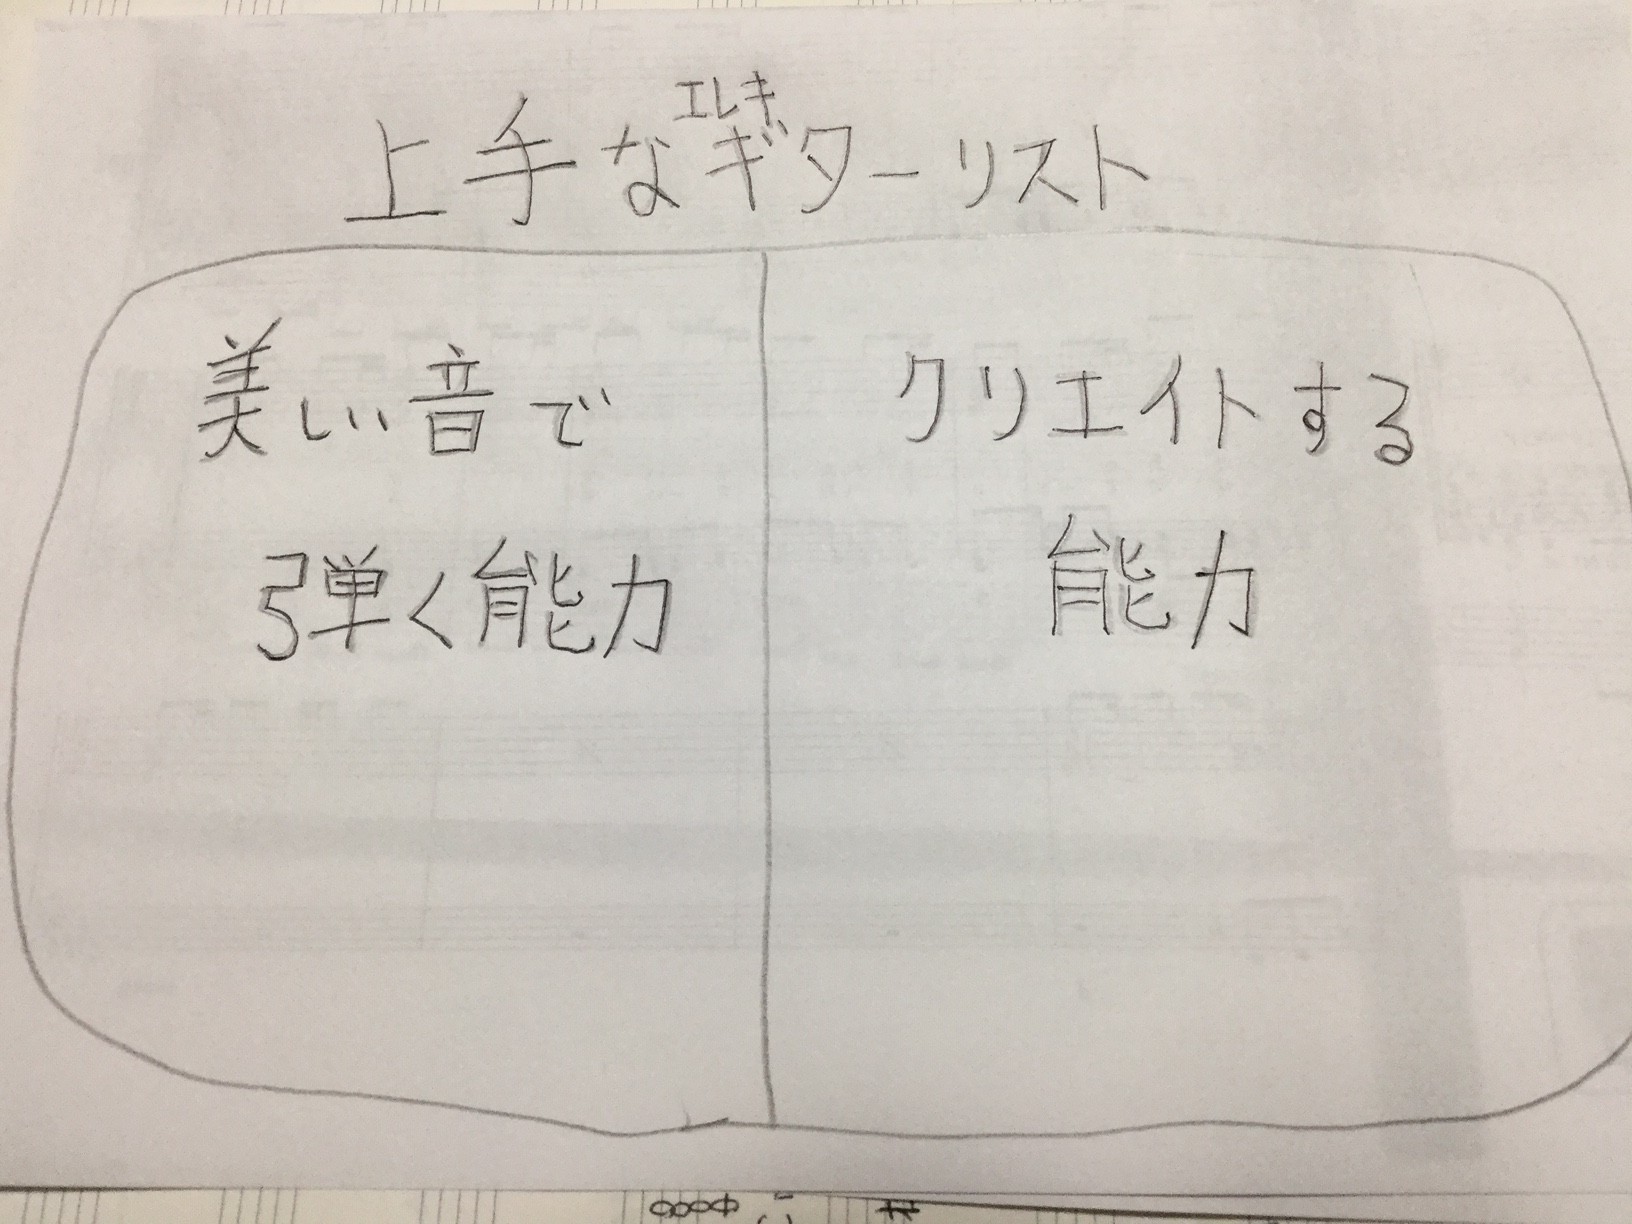 エレキ
上手なギターリスト
美しい音で
弾く能力
クリエイトする
能力